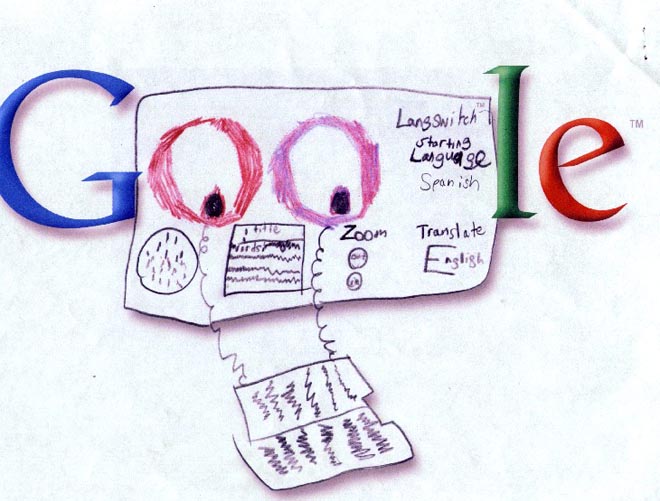 Google™
Langswitch™
Starting
Language
Spanish
title
words
Zoom
out
in
Translate
English